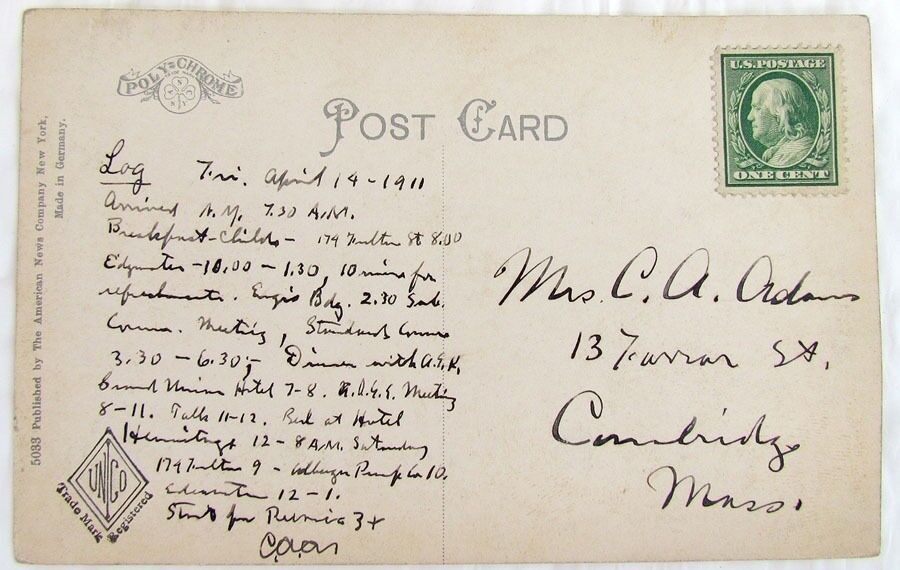 POLY-CHROME
POST CARD
U.S. POSTAGE
ONE CENT
5033 Published by The American News Company New York,
Made in Germany.
Log Fri. April 14-1911
Arrived N.Y. 7.30 A.M.
Breakfast-Childs- 174 Fulton St 8.00
Edgewater-10.00-1.30, 10 mins for
refreshments. Eng'g Bdg. 2.30 Sub.
Comm. Meeting, Standards Comm
3.30-6.30;- Dinner with
Grand Union Hotel 7-8. Meeting
8-11. Talk 11-12. Bed at Hotel
Hermitage 12-8 A.M. Saturday
174 Fulton 9- Pump Co 10.
Edgewater 12-1.
Start for 3+
Mrs. C. A. Adams
13 Farrar St.
Cambridge
Mass.
UNCO
Trade Mark Registered